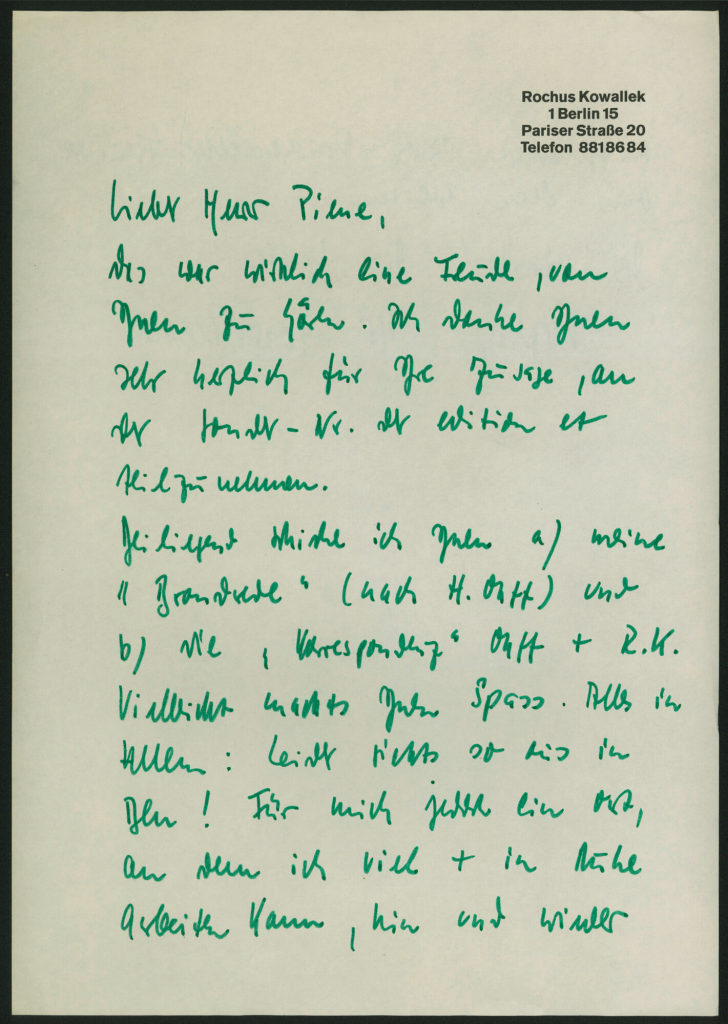 Rochus Kowallek
1 Berlin 15
Pariser Straße 20
Telefon 8818684
Lieber Herr Piene,
das war wirklich eine Freude, von
Ihnen zu hören. Ich danke Ihnen
sehr herzlich für Ihre Zusage, an
der Sonder-Nr. der edition et
teilzunehmen.
Beiliegend schicke ich Ihnen a) meine
"Brandrede" (nach H. Ohff) und
b) die "Korrespondenz" Ohff + R.K.
Vielleicht machts Ihnen Spass. Alles in
Allem: Leider siehts so aus in
Bln! Für mich jedoch ein Ort,
an dem ich viel + in Ruhe
arbeiten kann, hin und wieder